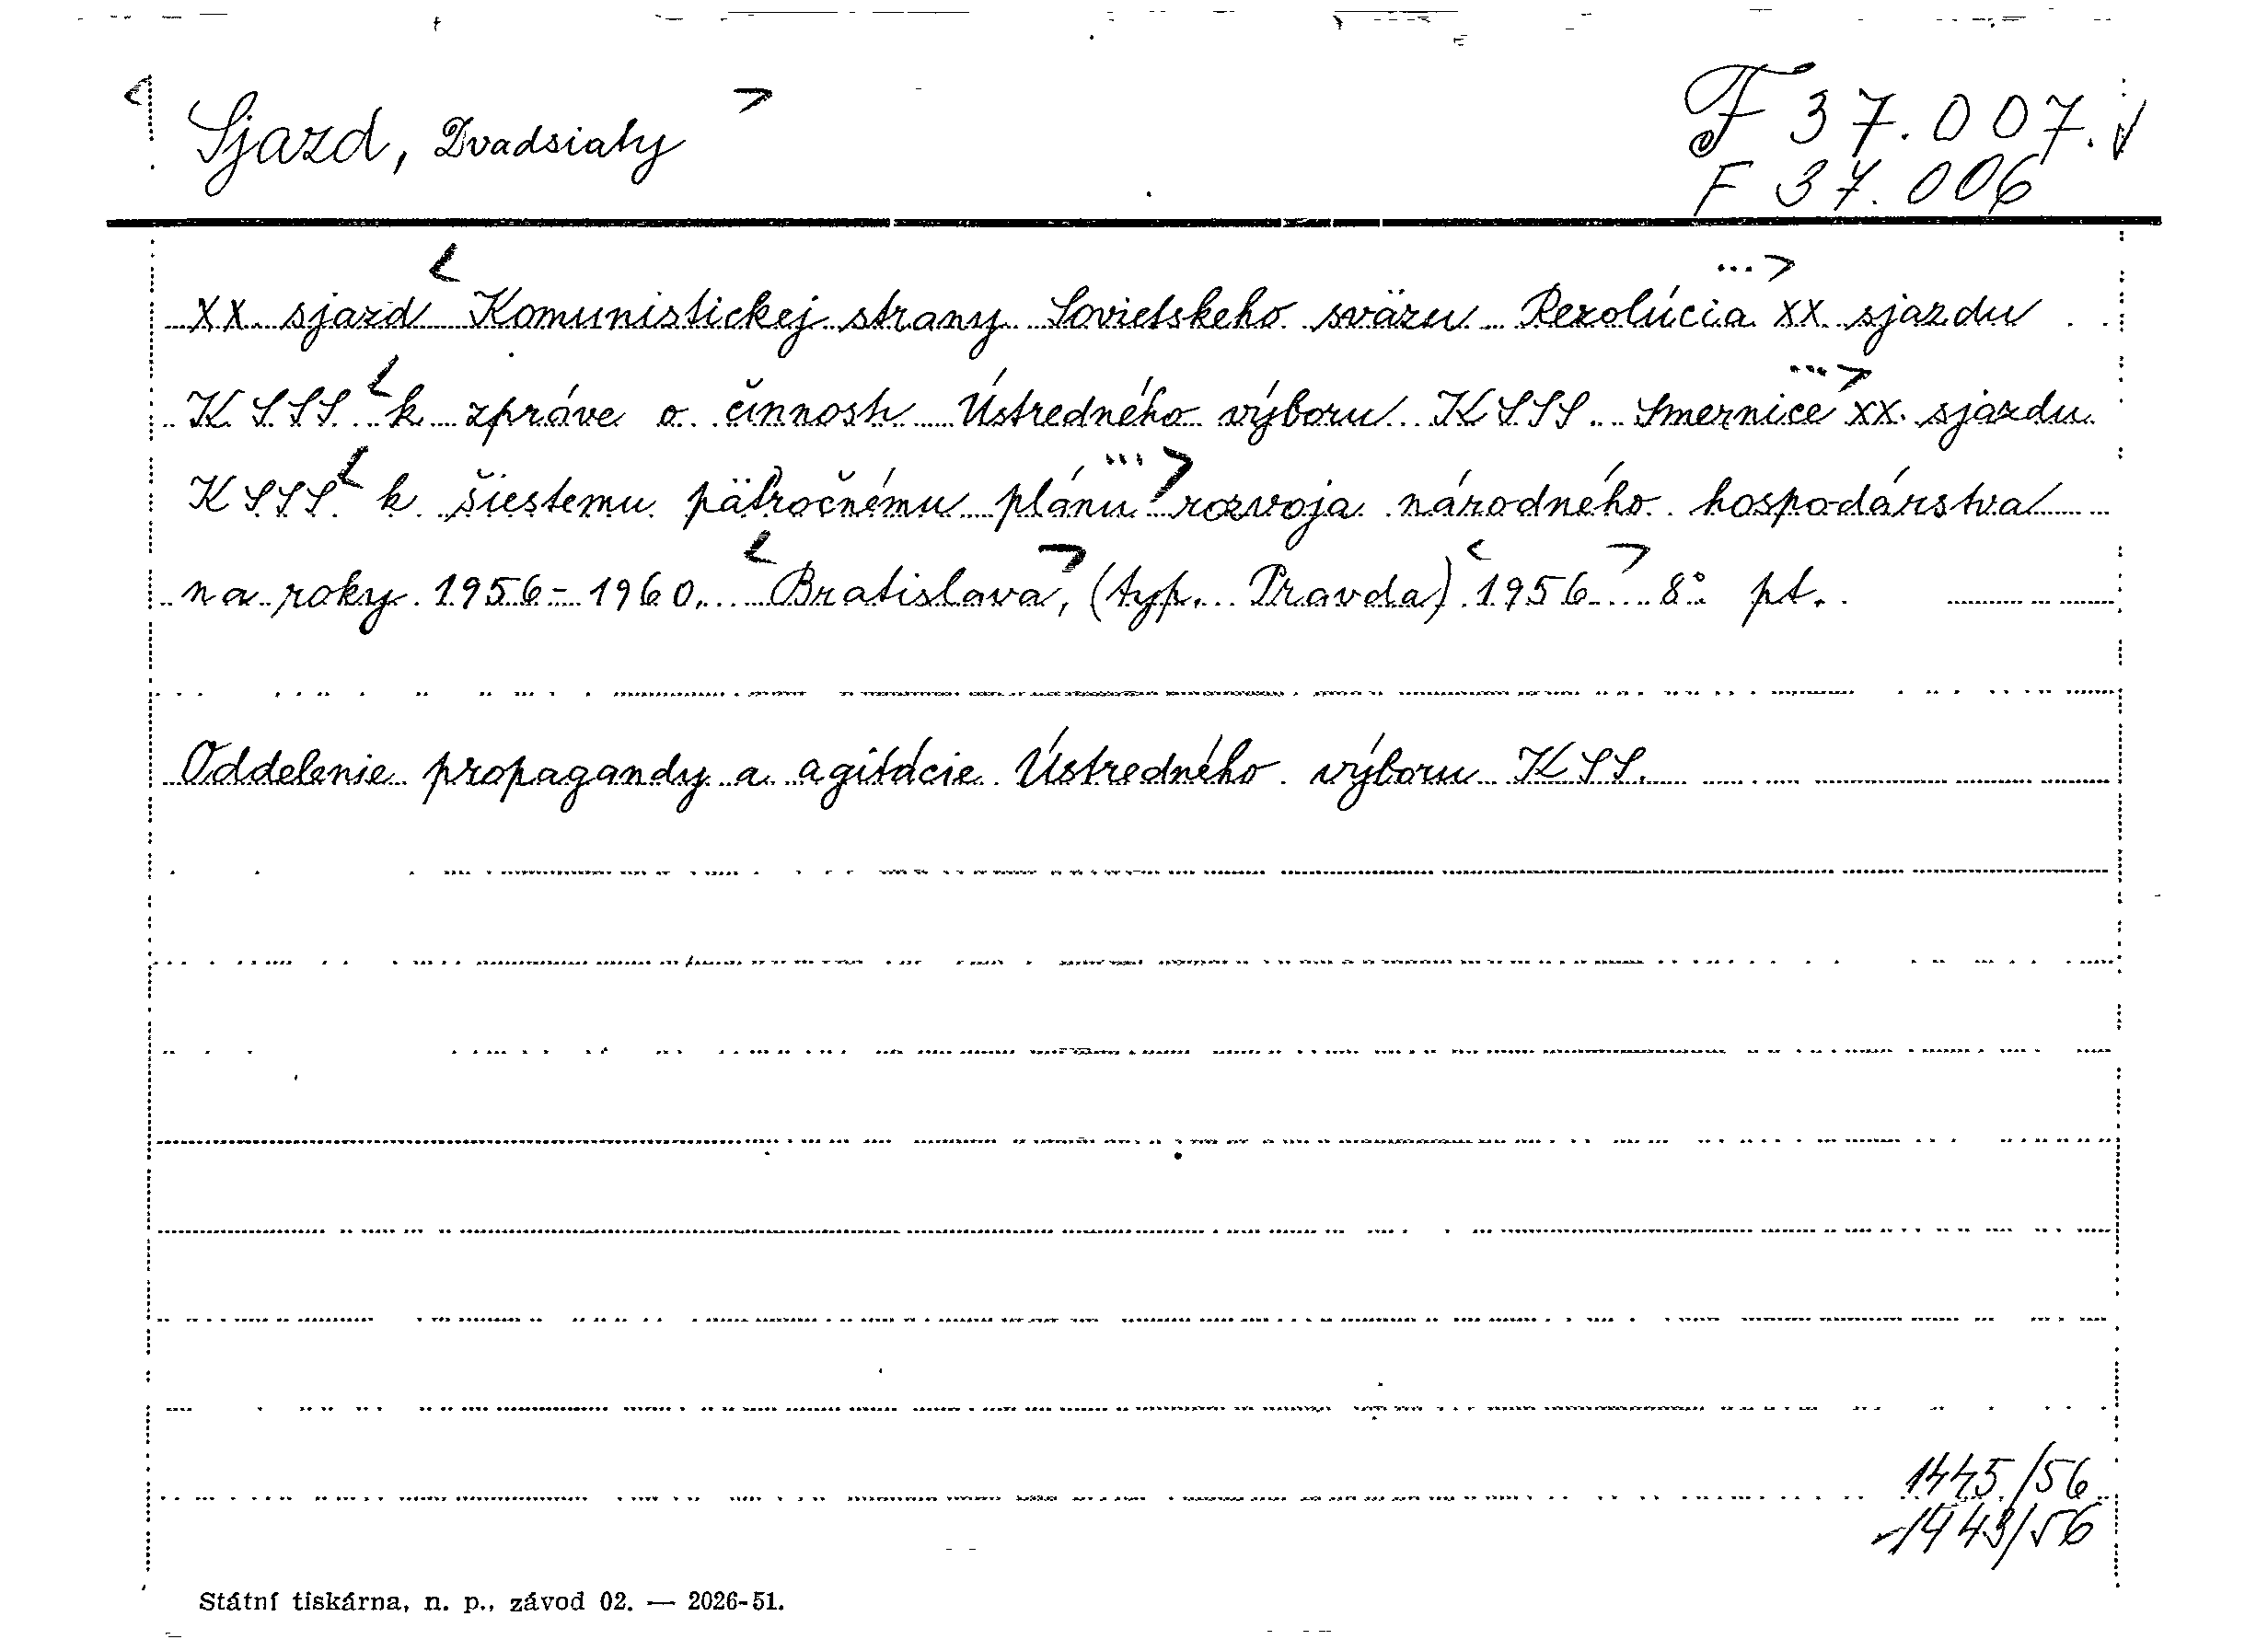 < Sjazd, Dvadsiaty >
F 37.007.
F 37.006
XX. sjazd < Komunistickej strany Sovietskeho sväzu Rezolúcia ...> XX. sjazdu
KSSS < k zpráve o činnosti Ústredného výboru KSSS. Smernice ...> XX. sjazdu
KSSS < k šiestemu päťročnému plánu ...> rozvoja národného hospodárstva
na roky 1956-1960. < Bratislava >, (typ. Pravda) < 1956 > 8° pt.
Oddelenie propagandy a agitácie Ústredného výboru KSS.
1445/56
1443/56
Státní tiskárna, n. p., závod 02. — 2026-51.